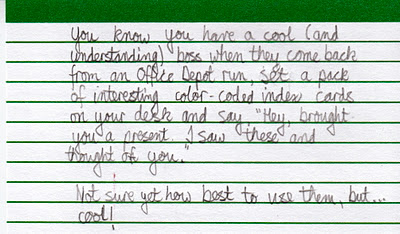 You know you have a cool (and
understanding) boss when they come back
from an Office Depot run, set a pack
of interesting color-coded index cards
on your desk and say, "Hey, brought
you a present. I saw these and
thought of you."
Not sure yet how best to use them, but...
cool!